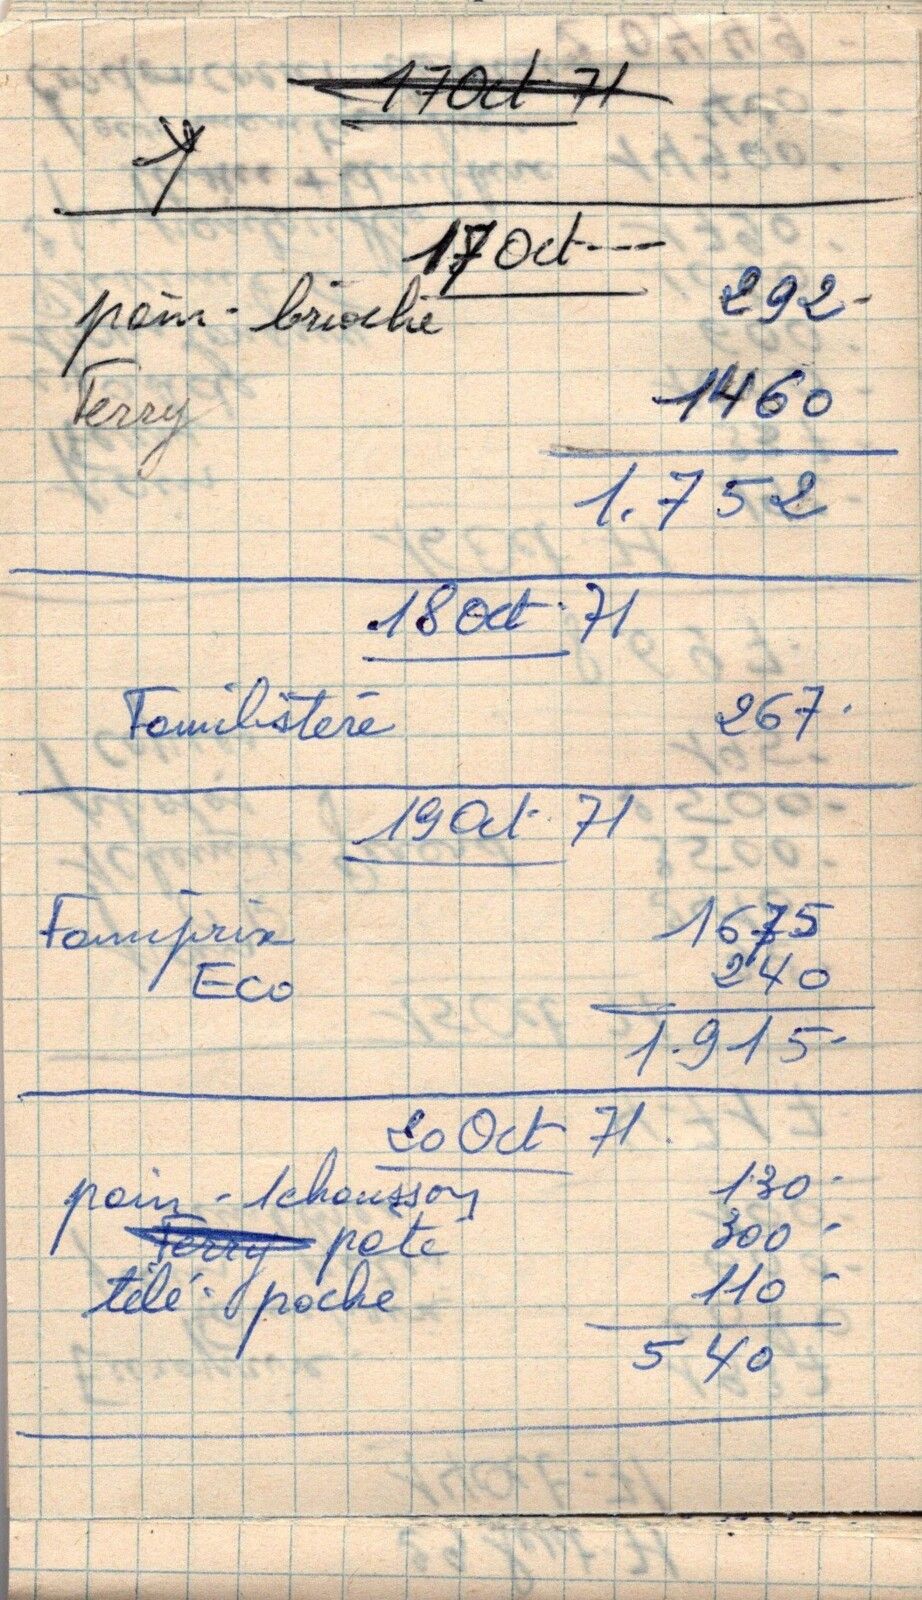 17 Oct 71
17 Oct ---
pain - brioche 292-
Ferry 1460
1.752
18 Oct. 71
Familistère 267.
19 Oct. 71
Famiprix 1675
Eco 240
1.915-
20 Oct 71.
pain - 1 chausson 130-
Ferry pâté 300-
télé-poche 110-
540